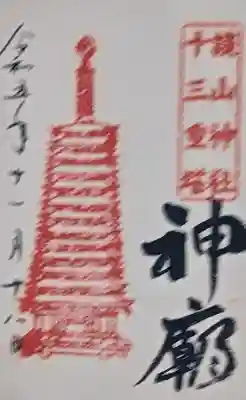 談山神社
十三重塔
神廟
令和五年十一月十八日